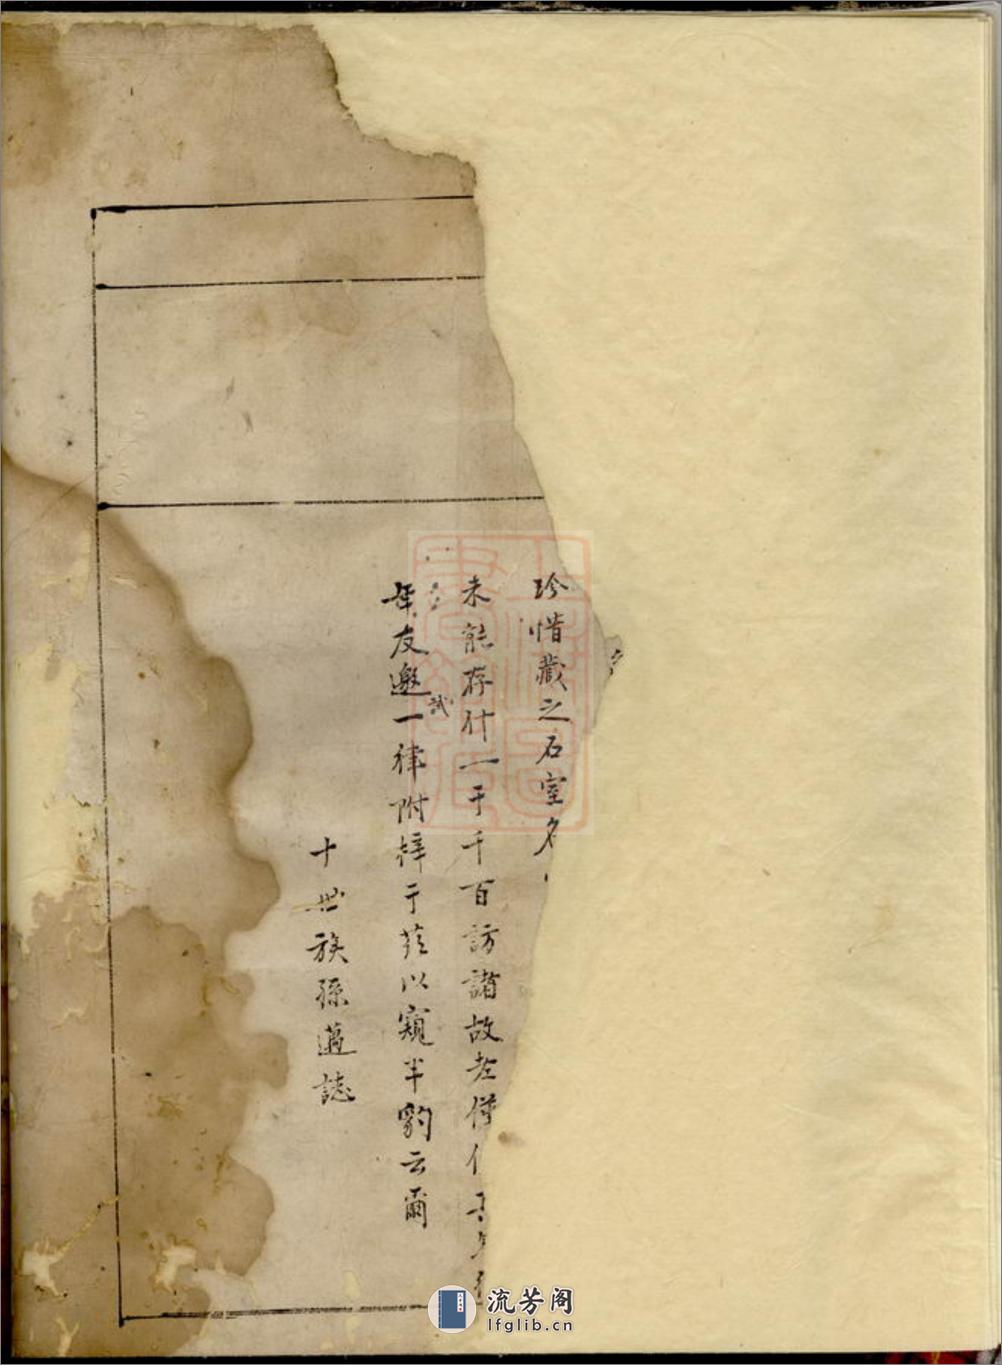 珍惜藏之石室名
未能存什一于千百訪諸故老僅
年友邀試一律附梓于茲以窺半豹云爾
十世族孫邁誌
上海圖書館藏
流芳阁
lfglib.cn